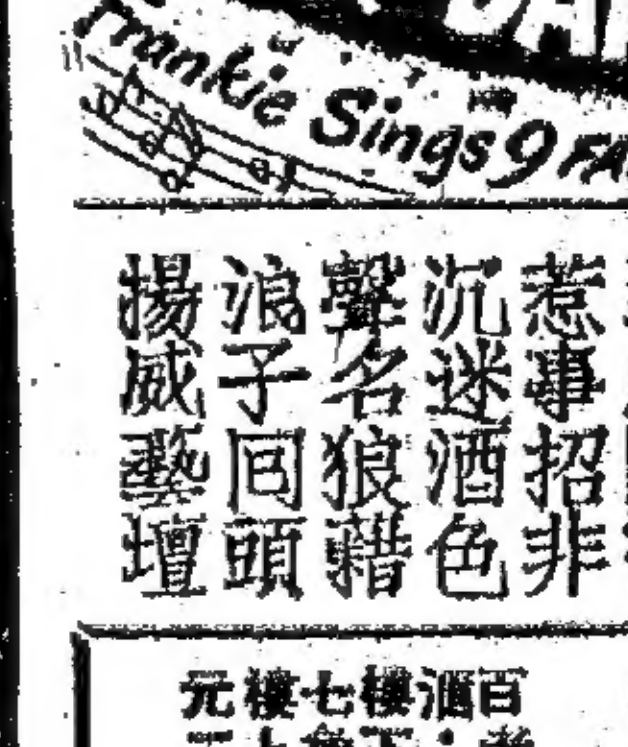 Frankie Sings 9 FA
惹事招非
沉迷酒色
聲名狼藉
浪子回頭
揚威藝壇
百滙樓七樓元